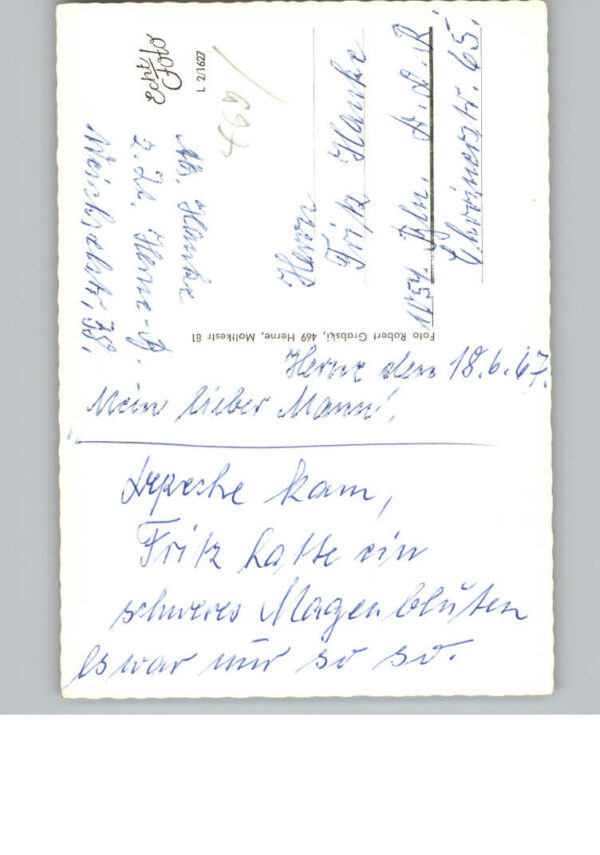 Echte
Foto
L 2/1627
1697
M. Hanke
z. Zt. Herne-B.
Weichselstr. 38.
Herrn
Fritz Hanke
1157 Bln. D.D.R.
str. 65.
Foto Robert Grabski, 469 Herne, Moltkestr 81
Herne den 18.6.67.
Mein lieber Mann!
Depesche kam,
Fritz hatte ein
schweres Magenblüten
Es war nur so so.